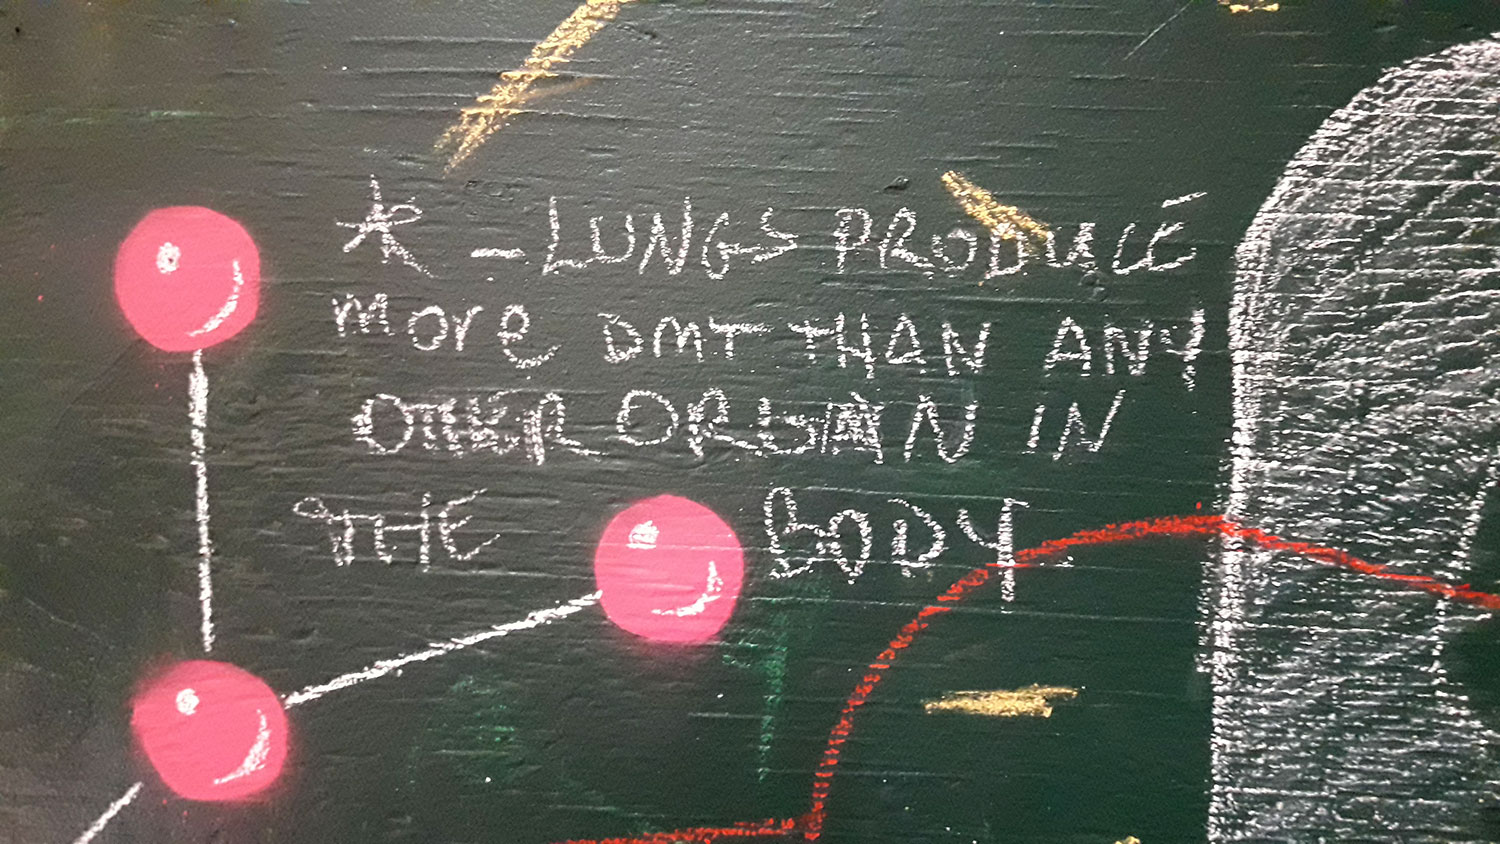 * - LUNGS PRODUCE
more DMT THAN ANY
OTHER ORGAN IN
THE BODY